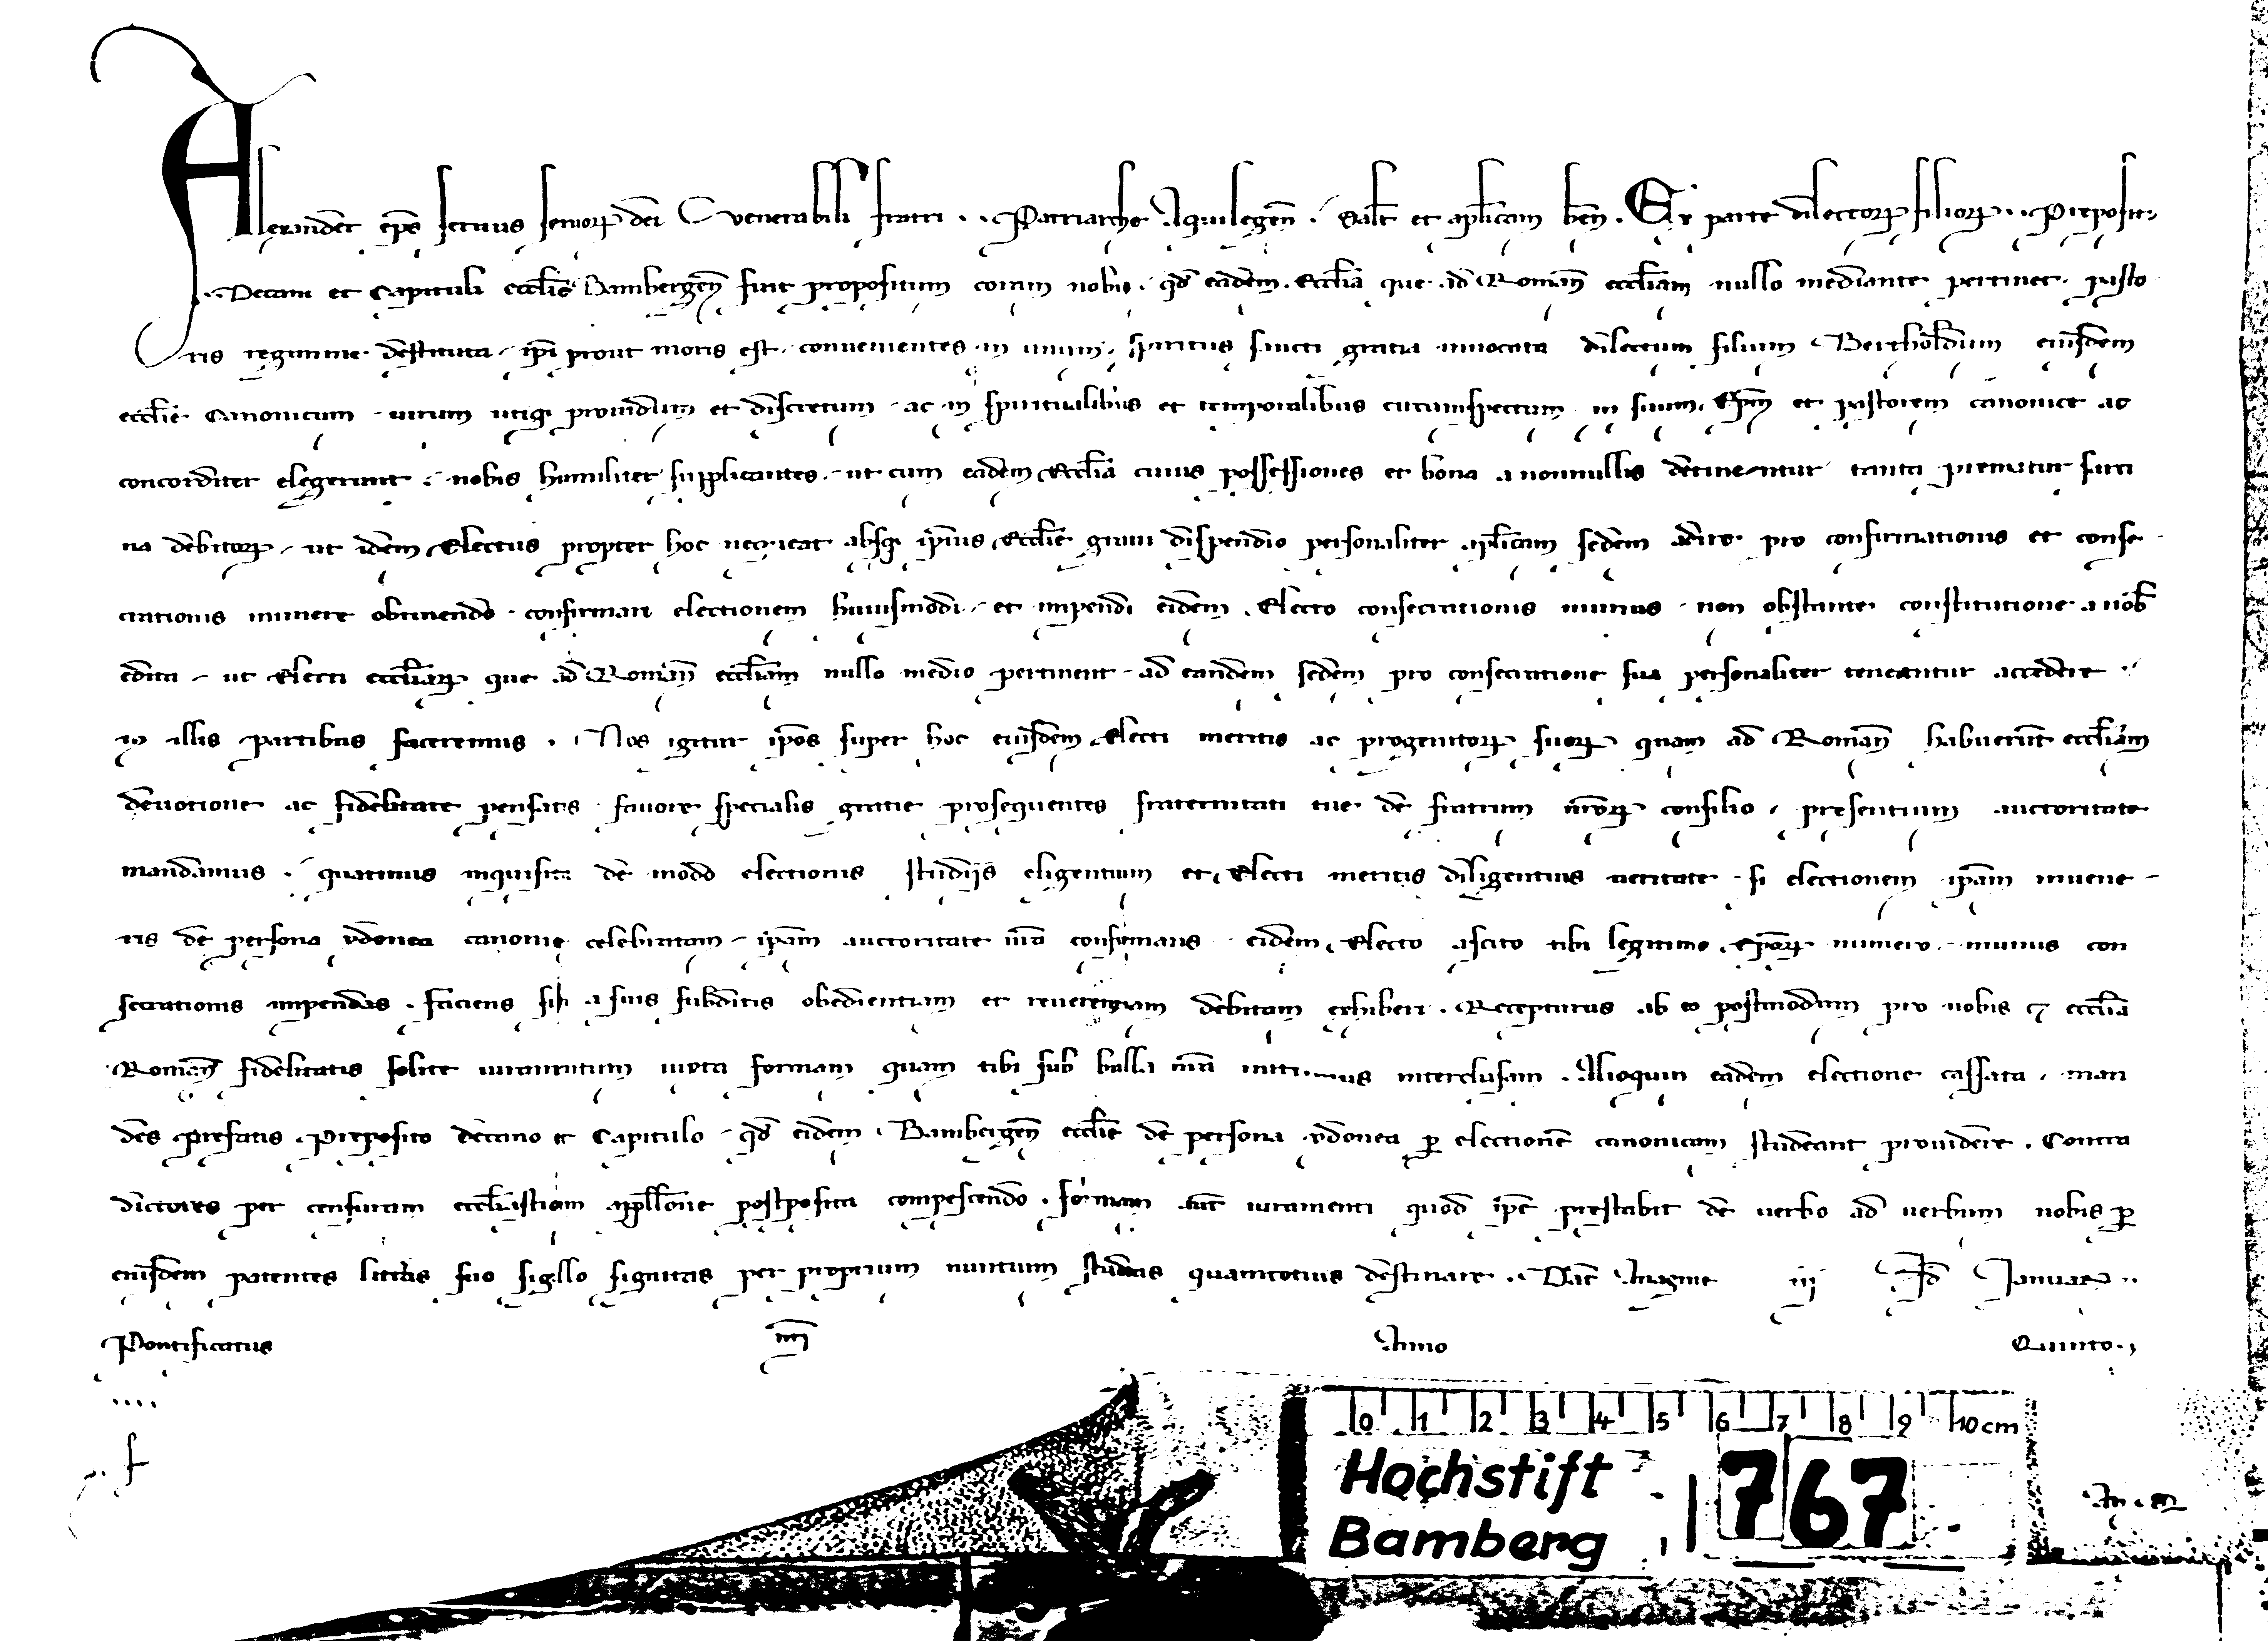 Alexander ep̄s seruus seruoꝝ dei Venerabili fratri .. Patriarche Aquilegen̄. Salt̄ et aplicam ben̄. Ex parte dilectoꝝ filioꝝ .. Prepositi
.. Decani et Capituli ecclīe Bambergen̄ fuit propositum coram nobis. qd̄ eadem Ecclīa que ad Roman̄ ecclīam nullo mediante pertinet. pasto
ris regimine destituta. ip̄i prout moris est. conuenientes in unum. spiritus sancti gratia inuocata dilectum filium Bertholdum eiusdem
ecclīe Canonicum. uirum utiqꝫ prouidum et discretum. ac in spiritualibus et temporalibus circumspectum. in suum Ep̄m et pastorem canonice ac
concorditer elegerunt. nobis humiliter supplicantes. ut cum eadem Ecclīa cuius possessiones et bona a nonnullis detinentur tanta prematur sarci
na debitoꝝ. ut idem Electus propter hoc nequeat absqꝫ ip̄ius Ecclīe graui dispendio personaliter aplicam sedem adire pro confirmationis et conse
crationis munere obtinendo. confirmari electionem huiusmodi. et impendi eidem Electo consecrationis munus. non obstante constitutione a nob̄
edita. ut Electi ecclīaꝝ que ad Roman̄ ecclīam nullo medio pertinent. ad eandem sedem pro consecratione sua personaliter teneantur accedere.
in illis partibus faceremus. Nos igitur ip̄os super hoc eiusdem Electi meritis ac progenitoꝝ suoꝝ quam ad Roman̄ habuerunt ecclīam
deuotione ac fidelitate pensatis fauore specialis gratie prosequentes fraternitati tue de fratrum nr̄oꝝ consilio. presentium auctoritate
mandamus. quatinus inquisita de modo electionis studijs eligentium et Electi meritis diligentius ueritate. si electionem ip̄am inuene
ris de persona ydonea canonice celebratam. ip̄am auctoritate nr̄a confirmans. eidem Electo ascito tibi legitimo Ep̄oꝝ numero. munus con
secrationis impendas. faciens sibi a suis subditis obedientiam et reuerentiam debitam exhiberi. Recepturus ab eo postmodum pro nobis ⁊ ecclīa
Roman̄ fidelitatis solite iuramentum iuxta formam quam tibi sub bulla nr̄a mittimus interclusam. Alioquin eadem electione cassata. man
des prefatis Preposito decano et Capitulo. qd̄ eidem Bambergen̄ ecclīe de persona ydonea ꝑ electionē canonicam studeant prouidere. Contra
dictores per censuram ecclīasticam appellōne postposita compescendo. formam aut̄ iuramenti quod ip̄e prestabit de uerbo ad uerbum nobis ꝑ
eiusdem patentes litteras suo sigillo signatas per proprium nuntium studeas quamtotius destinare. Dat̄ Anagnie iij Id̄ Januar̄
Pontificatus nr̄i Anno Quinto.
0 1 2 3 4 5 6 7 8 9 10 cm
Hochstift
Bamberg
767